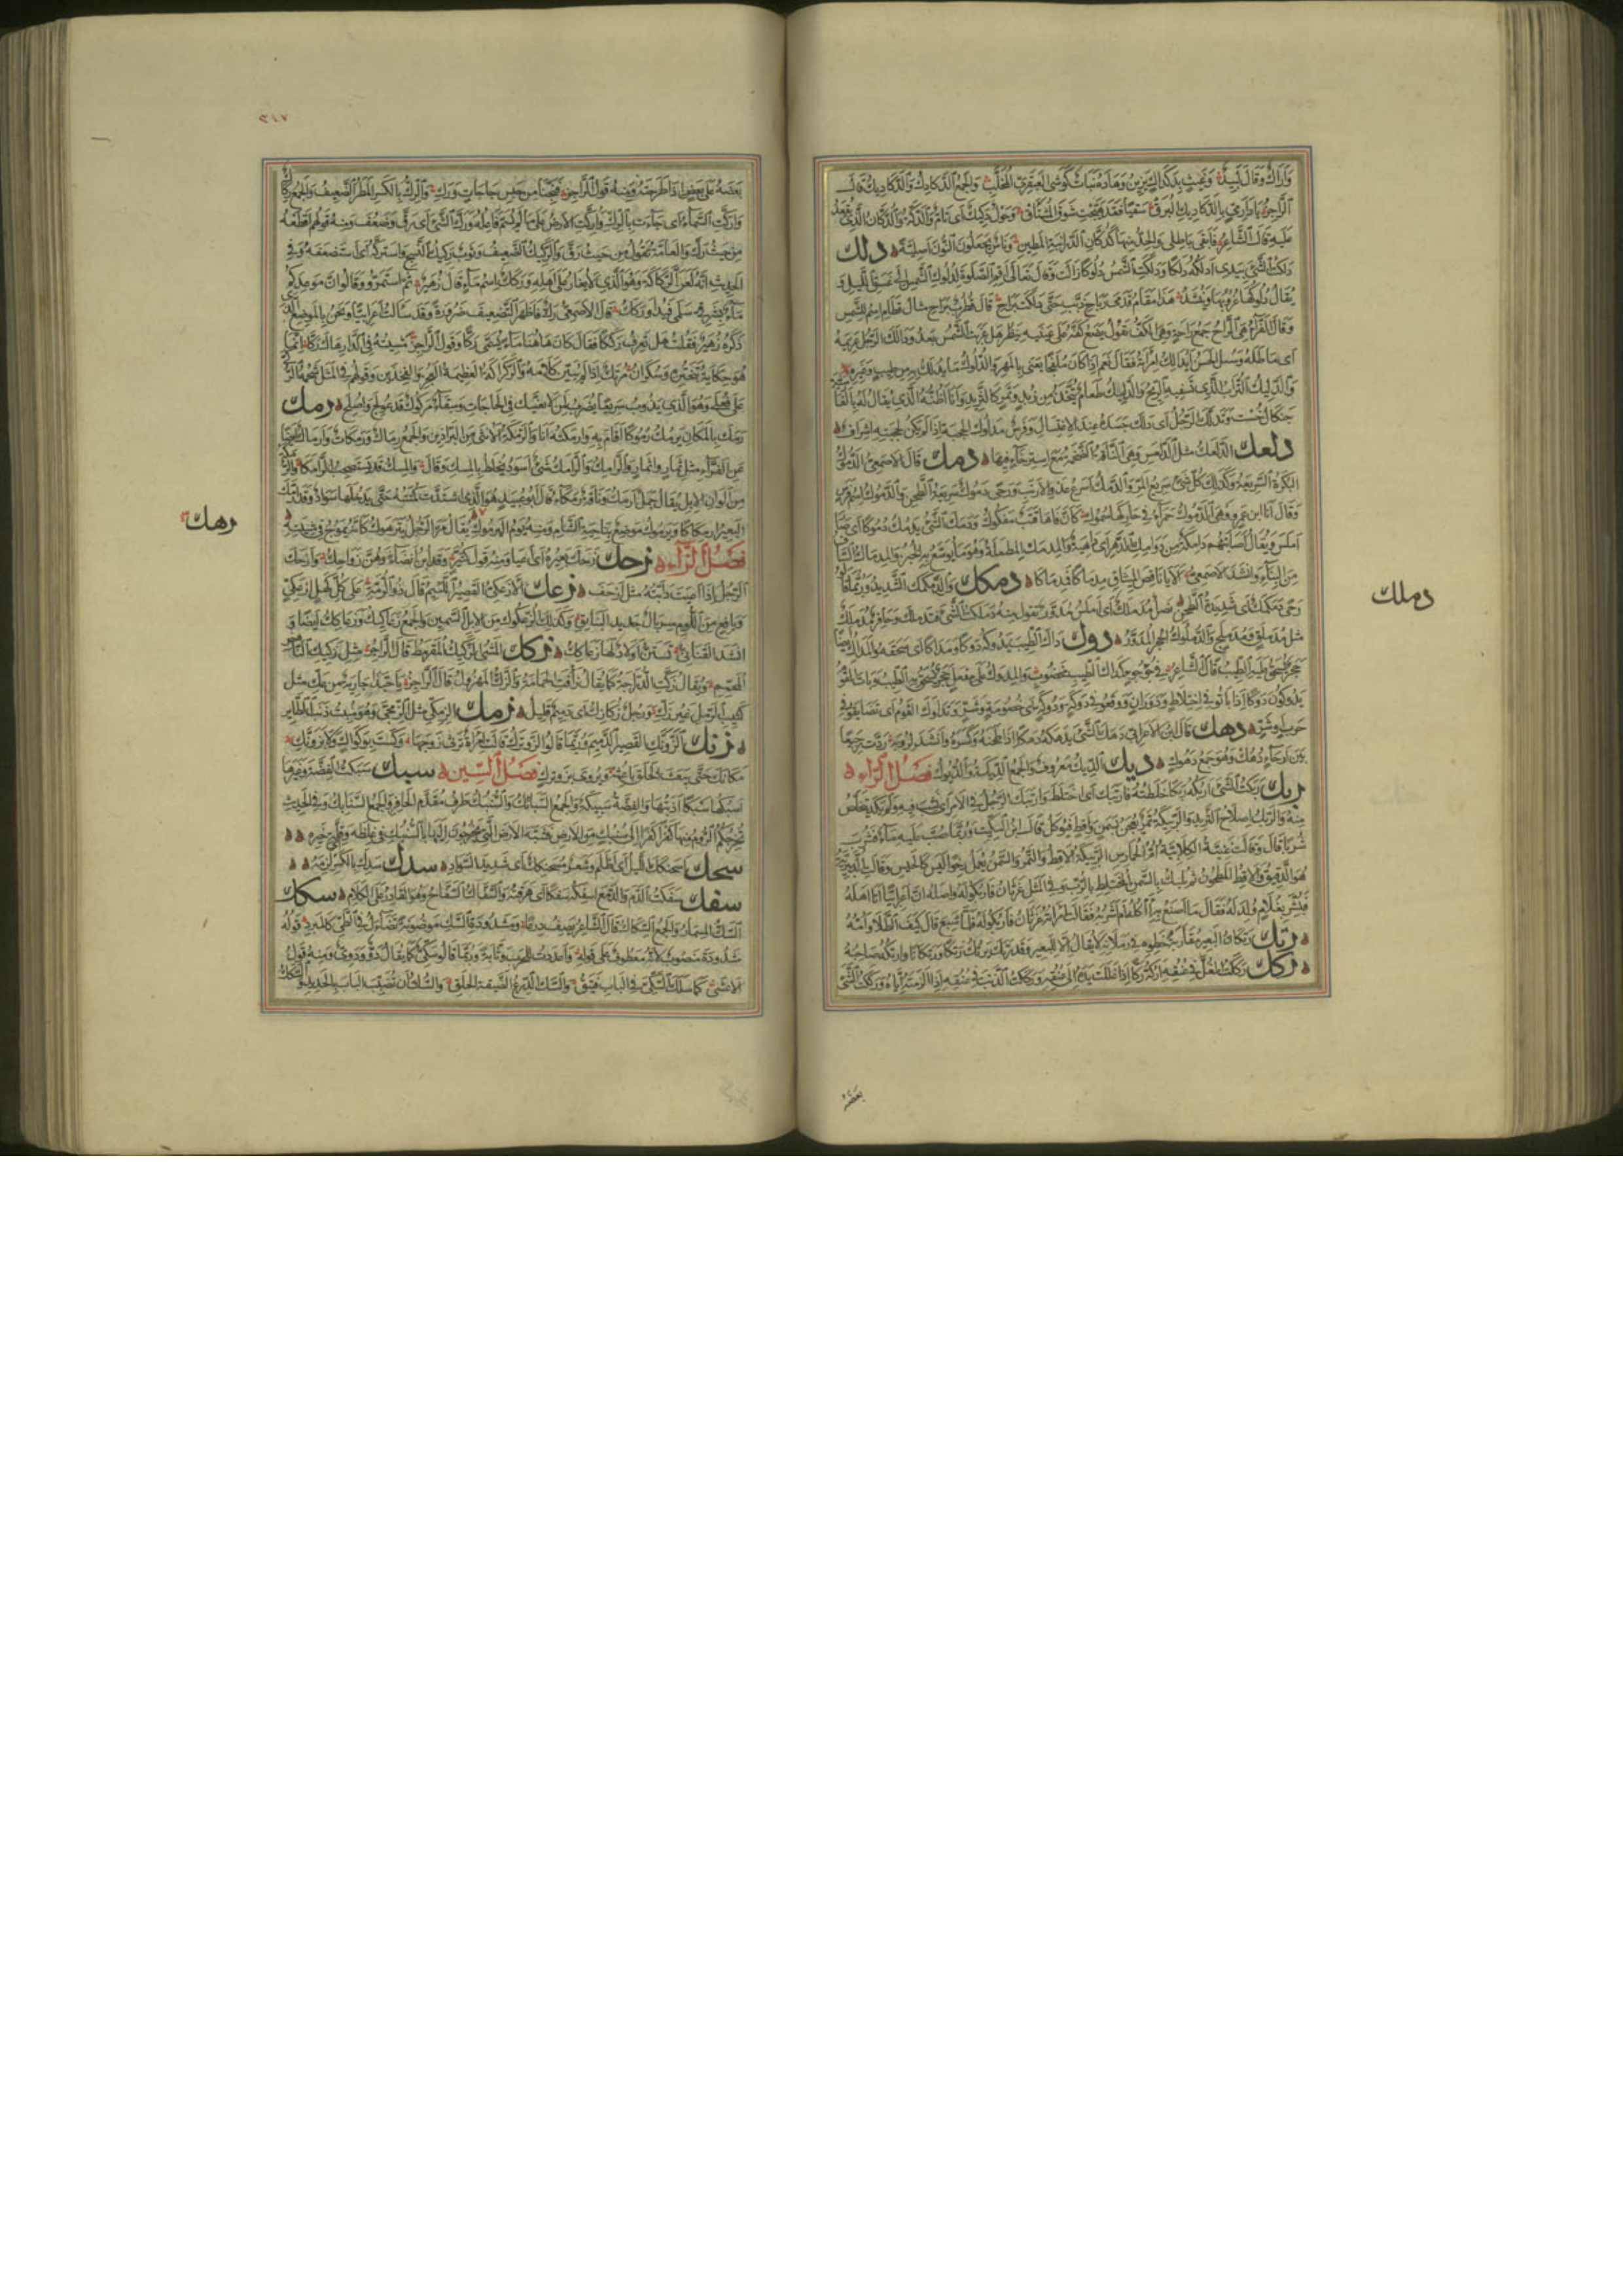 وأراك وقال لبيد وغيث بدكداك يزين وهاده نبات كوشي العبقري المخلب والجمع الدكادك والدكاديك قال
الراجز يا دار مي بالدكاديك البرق سقيا فقد هيجت شوق المشتاق وحول دكيك أي تام والدكة والدكان الذي يقعد
عليه قال الشاعر فأبقى باطلي والجد منها كدكان الدرابنة المطين وناس يجعلون النون أصلية دلك
دلكت الشيء بيدي أدلكه دلكا ودلكت الشمس دلوكا زالت وقال تعالى أقم الصلوة لدلوك الشمس إلى غسق الليل و
يقال دلوكها غروبها وينشد هذا مقام قدمي رباح ذبب حتى دلكت براح قال قطرب براح مثال قطام اسم للشمس
وقال الفراء هي الراح جمع راحة وهي الكف يقول يضع كفه على عينيه ينظر هل غربت الشمس بعد ودالك الرجل غريمه
أي ماطله وسئل الحسن أيدالك الرجل امرأته فقال نعم إذا كان ملفجا يعني بالمهر والدلوك ما يدلك به من طيب وغيره
والدليك التراب الذي تسفيه الريح والدليك طعام يتخذ من زبد وتمر كالثريد وأنا أظنه الذي يقال له بالفارسية
جنكال خست وتدلك الرجل أي دلك جسده عند الاغتسال وفرس مدلوك الحجبة إذا لم يكن لحجبته إشراف
دلعك الدلعك مثل الدلعس وهي الناقة الضخمة مع استرخاء فيها دمك قال الأصمعي الدموك
البكرة السريعة وكذلك كل شيء سريع المر والدمك أسرع عدو الأرنب ورحى دموك سريعة الطحن والدموك اسم فرس
وقال أنا ابن عمرو وهي الدموك حمراء في حاركها سموك كأن فاها قتب مفكوك ودمك الشيء يدمك دموكا أي صار
أملس ويقال أصابتهم دامكة من دوامك الدهر أي داهية والمدمك المطملة وهو ما يوسع به الخبز والمدماك الساف
من البناء وأنشد الأصمعي ألا يا ناقض الميثاق مدماكا فمدماكا دمكك والدمكمك الشديد وربما قالوا
رحى دمكمك أي شديدة الطحن نصل مدملك أي أملس مدور تقول منه دملكت الشيء فتدملك وحافر مدملك
مثل مدملق ومدملج والدملوك الحجر المدور دوك داك الطيب يدوكه دوكا ومداكا أي سحقه والمداك أيضا
حجر يسحق عليه الطيب قال الشاعر في جؤجؤ كمداك الطيب مخضوب والمدوك على مفعل حجر يسحق به الطيب وبات القوم
يدوكون دوكا إذا باتوا في اختلاط ودوران ووقعوا في دوكة ودوكة أي خصومة وشر وتداوك القوم أي تضايقوا في
حرب أو شر دهك قال ابن الأعرابي دهك الشيء يدهكه دهكا إذا طحنه وكسره وأنشد لرؤبة ردت رجيعا
بين أرحاء دهك وهو جمع دهوك ديك الديك معروف والجمع الديكة والديوك فصل الراء
ربك ربكت الشيء أربكه ربكا خلطته فارتبك أي اختلط وارتبك الرجل في الأمر أي نشب فيه ولم يكد يتخلص
منه والربك إصلاح الثريد والربيكة تمر يعجن بسمن وأقط فيؤكل قال ابن السكيت وربما صب عليه ماء فشرب
شربا قال وقالت غنية الكلابية أم الحمارس الربيكة الأقط والتمر والسمن يعمل رخوا ليس كالحيس وقالت الدبيرية
هو الدقيق والأقط المطحون ثم يلبك بالسمن المختلط بالرب وفي المثل غرثان فاربكوا له وأصله أن أعرابيا أتى أهله
فبشر بغلام ولد له فقال ما أصنع به أآكله أم أشربه فقالت امرأته غرثان فاربكوا له فلما شبع قال كيف الطلا وأمه
رتك رتكان البعير مقاربة خطوه في رملانه لا يقال إلا للبعير وقد رتك يرتك رتكا ورتكانا وأرتكه صاحبه
ركك رككت الغل في عنقه أركه ركا إذا غللت يده إلى عنقه ورككت الذنب في عنقه إذا ألزمته إياه ورككت الشيء
بعضه
دملك
٣١٧
بعضه على بعض إذا طرحته ومنه قول الراجز فنجنا من حبس حاجات ورك والرك بالكسر المطر الضعيف والجمع ركاك
وأركت السماء أي جاءت بالرك وأركت الأرض على ما لم يسم فاعله ورك الشيء أي رق وضعف ومنه قولهم اقطعه
من حيث رك والعامة تقول من حيث رق والركيك الضعيف وثوب ركيك النسج واستركه أي استضعفه وفي
الحديث أنه لعن الركاكة وهو الذي لا يغار على أهله وركك اسم ماء قال زهير ثم استمروا وقالوا إن موعدكم
ماء بشرقي سلمى فيد أو ركك قال الأصمعي رك فأظهر التضعيف ضرورة وقد سألت أعرابيا ونحن بالموضع الذي
ذكره زهير فقلت هل تعرف رككا فقال كان هاهنا ماء يسمى ركا وقول الراجز مشيته في الدار هاك ركا إنما
هو حكاية تبختره وسكران مرتك إذا لم يبين كلامه والركراكة العظيمة العجز والفخذين وقولهم في المثل شحمة الركى
على فعلى وهو الذي يذوب سريعا يضرب لمن لا يعينك في الحاجات وسقاء مركوك قد عولج وأصلح رمك
رمك بالمكان يرمك رموكا أقام به وأرمكته أنا والرمكة الأنثى من البراذين والجمع رماك ورمكات وأرماك أيضا
عن الفراء مثل ثمار وأثمار والرامك والرامك شيء أسود يخلط بالمسك وقال والمسك قد يستصحب الرامكا والرمكة
من ألوان الإبل يقال جمل أرمك وناقة رمكاء قال أبو عبيد هو الذي اشتدت كمتته حتى يدخلها سواد وقد ارمك
البعير ارمكاكا ويرموك موضع بناحية الشام ومنه يوم اليرموك يقال مر الرجل يترهوك كأنه يموج في مشيته
فصل الزاء زحك زحك بعيره أي أعيا ومنه قول كثير وقد أبن أنضاء وهن زواحك وأزحك
الرجل إذا أعيت دابته مثل أزحف زعك الأزعكي القصير اللئيم قال ذو الرمة على كل كهل أزعكي
ويافع من اللؤم سربال جديد البنائق وكذلك الزعكوك من الإبل السمين والجمع زعاكيك وزعاكك أيضا و
أنشد القناني تستن أولاد لها زعاكك زكك المشي الزكيك المقرمط قال الراجز مثل زكيك الناهض
المحمم ويقال زكت الدراجة كما يقال زافت الحمامة والزك المهزول قال الراجز يا حبذا جارية من عك مثل
كثيب الرمل غير زك ورجل زكازك أي دميم قليل زمك الزمكى مثل الزمجى وهو منبت ذنب الطائر
زنك الزونك القصير الدميم وربما قالوا الزونزك قالت امرأة ترثي زوجها ولست بوكواك ولا بزونك
مكانك حتى يبعث الخلق باعثه ويروى بزونزك فصل السين سبك سبكت الفضة وغيرها
أسبكها سبكا أذبتها والفضة سبيكة والجمع السبائك والسنبك طرف مقدم الحافر والجمع السنابك وفي الحديث
تخرجكم الروم منها كفرا كفرا إلى سنبك من الأرض فشبه الأرض التي يخرجون إليها بالسنبك في غلظه وقلة خيره
سحك اسحنكك الليل أي أظلم وشعر مسحنكك أي شديد السواد سدك سدك به بالكسر لزمه
سفك سفكت الدم والدمع أسفكه سفكا أي هرقته والسفاك السفاح وهو القادر على الكلام سكك
السك المسمار والجمع السكاك قال الشاعر يصف درعا ومشدودة السك موضونة تضاءل في الطي كالمبرد قوله
مشدودة منصوب لأنه معطوف على قوله وأعددت للحرب وثابة وربما قالوا سكي كما يقال دو ودوي ومنه قول
الأعشى كما سلك السكي في الباب فيتق والسك الدرع الضيقة الحلق والسك أن تضبب الباب بالحديد والسكك
رهك